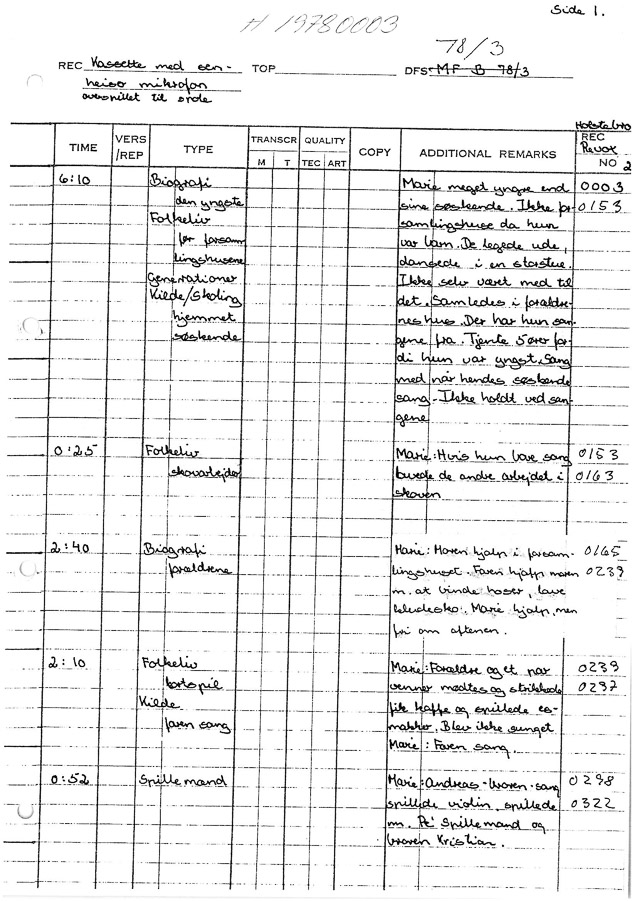 Side 1.
H 19780003
78/3
REC Kassette med sen-
heiso mikrofon
overspillet til orde
TOP
DFS MF B 78/3
Holstebro
TIME
VERS /REP
TYPE
TRANSCR
M T
QUALITY
TEC ART
COPY
ADDITIONAL REMARKS
REC
Revox
NO 2
6:10
Biografi
den yngste
Folkeliv
før forsam
lingshusene
Generationer
Kilde/Skoling
hjemmet
søskende
Marie meget yngre end
sine søskende. Ikke for
samlingshuse da hun
var barn. De legede ude,
dansede i en storstue.
Ikke selv været med til
det. Samledes i foraldre
nes hus. Der har hun san-
gene fra. Tjente 5 ører for
di hun var yngst. Sang
med når hendes søskende
sang. Ikke holdt ved san-
gene
0003
0153
0:25
Folkeliv
skovarbejder
Marie: Hvis hun bare sang
lavede de andre arbejdet i
skoven
0153
0163
2:40
Biografi
foraldrene
Marie: Moren hjalp i forsam-
lingshuset. Faren hjalp moren
m. at binde hoser, lave
Marie hjalp, men
fri om aftenen.
0165
0239
2:10
Folkeliv
kortspil
Kilde
faren sang
Marie: Foraldre og et par
venner mødtes og strikkede
fik kaffe og spillede es-
makker. Blev ikke sunget
Marie: Faren sang.
0239
0297
0:52
Spillemand
Marie: Andreas - broren - sang
spillede violin. spillede
m. Pe' Spillemand og
broren Kristian.
0298
0322